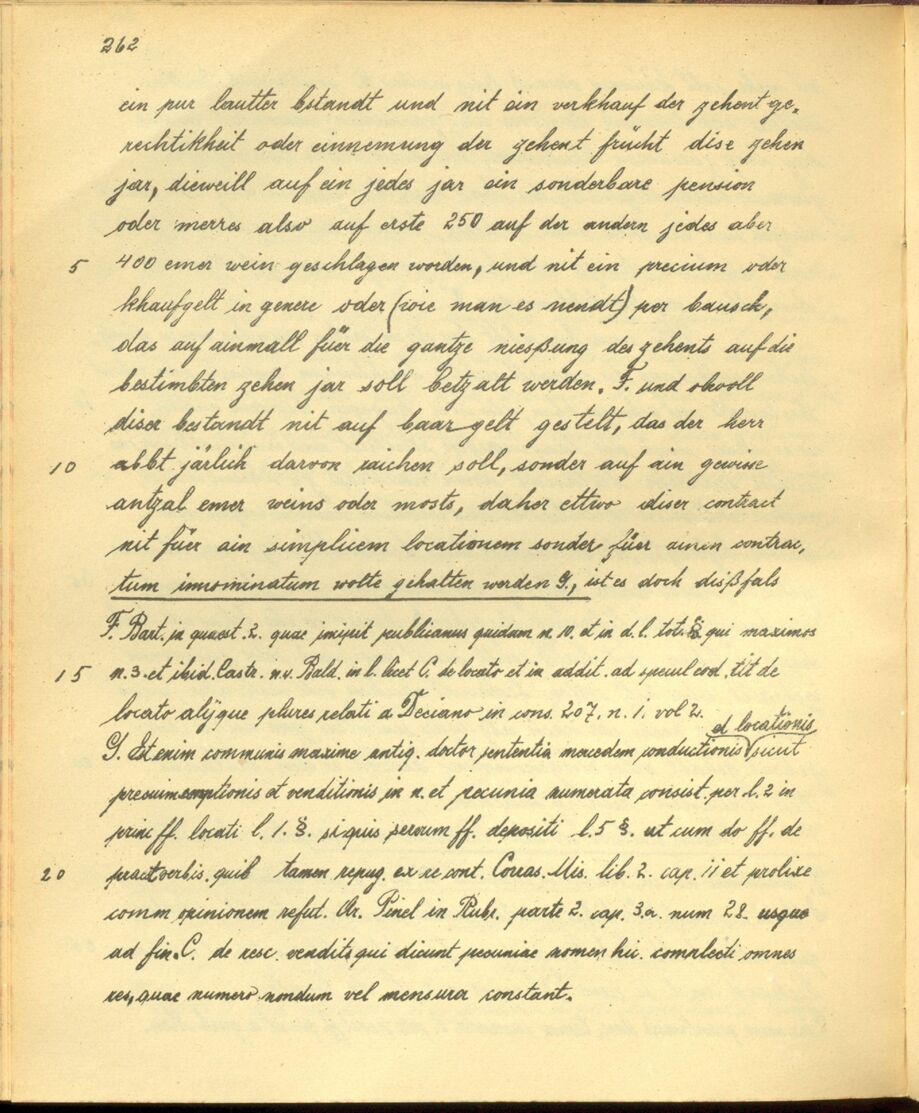 262
ein pur lautter bstandt und nit ein verkhauf der zehent ge-
rechtikheit oder einnemung der zehent frücht dise zehen
jar, dieweill auf ein jedes jar ein sonderbare pension
oder merres also auf erste 250 auf der andern jedes aber
5 400 emer wein geschlagen worden, und nit ein precium oder
khaufgelt in genere oder (wie man es nendt) per bausch,
das auf ainmall füer die gantze niesßung des zehents auf die
bestimbten zehen jar soll betzalt werden. F. und obwoll
diser bestandt nit auf baar gelt gestelt, das der herr
10 abbt järlich darvon raichen soll, sonder auf ain gewisse
antzal emer weins oder mosts, daher ettwo diser contract
nit füer ain simplicem locationem sonder füer ainen contrac,
tum innominatum wolte gehalten werden G., ist es doch disßfals
F. Bart. in quaest. 2. quae incipit publicanus quidam n. 10. et in d. l. tot. § qui maximos
15 n. 3. et ibid. Castr. n.v. Bald. in l. licet C. de locato et in addit. ad specul eod. tit de
locato alijque plures relati a Deciano in cons. 207. n. 1. vol 2.
et locationis
G. Etenim communis maxime antiq. doctor sententia mercedem conductionis sicut
precium emptionis et venditionis in n. et pecunia numerata consist. per l. 2 in
princ ff. locati l. 1. §. si quis servum ff. depositi l. 5 §. at cum do ff. de
20 praet verbis. quib tamen repug. ex re cont. Corras. Mis. lib. 2. cap. 11 et prolixe
comm opinionem refut. Ar. Pinel in Rubr. parte 2. cap. 3. a. num 28. usque
ad fin. C. de resc. vendits qui dicunt pecuniae nomen hic. complecti omnes
res, quae numero nondum vel mensura constant.